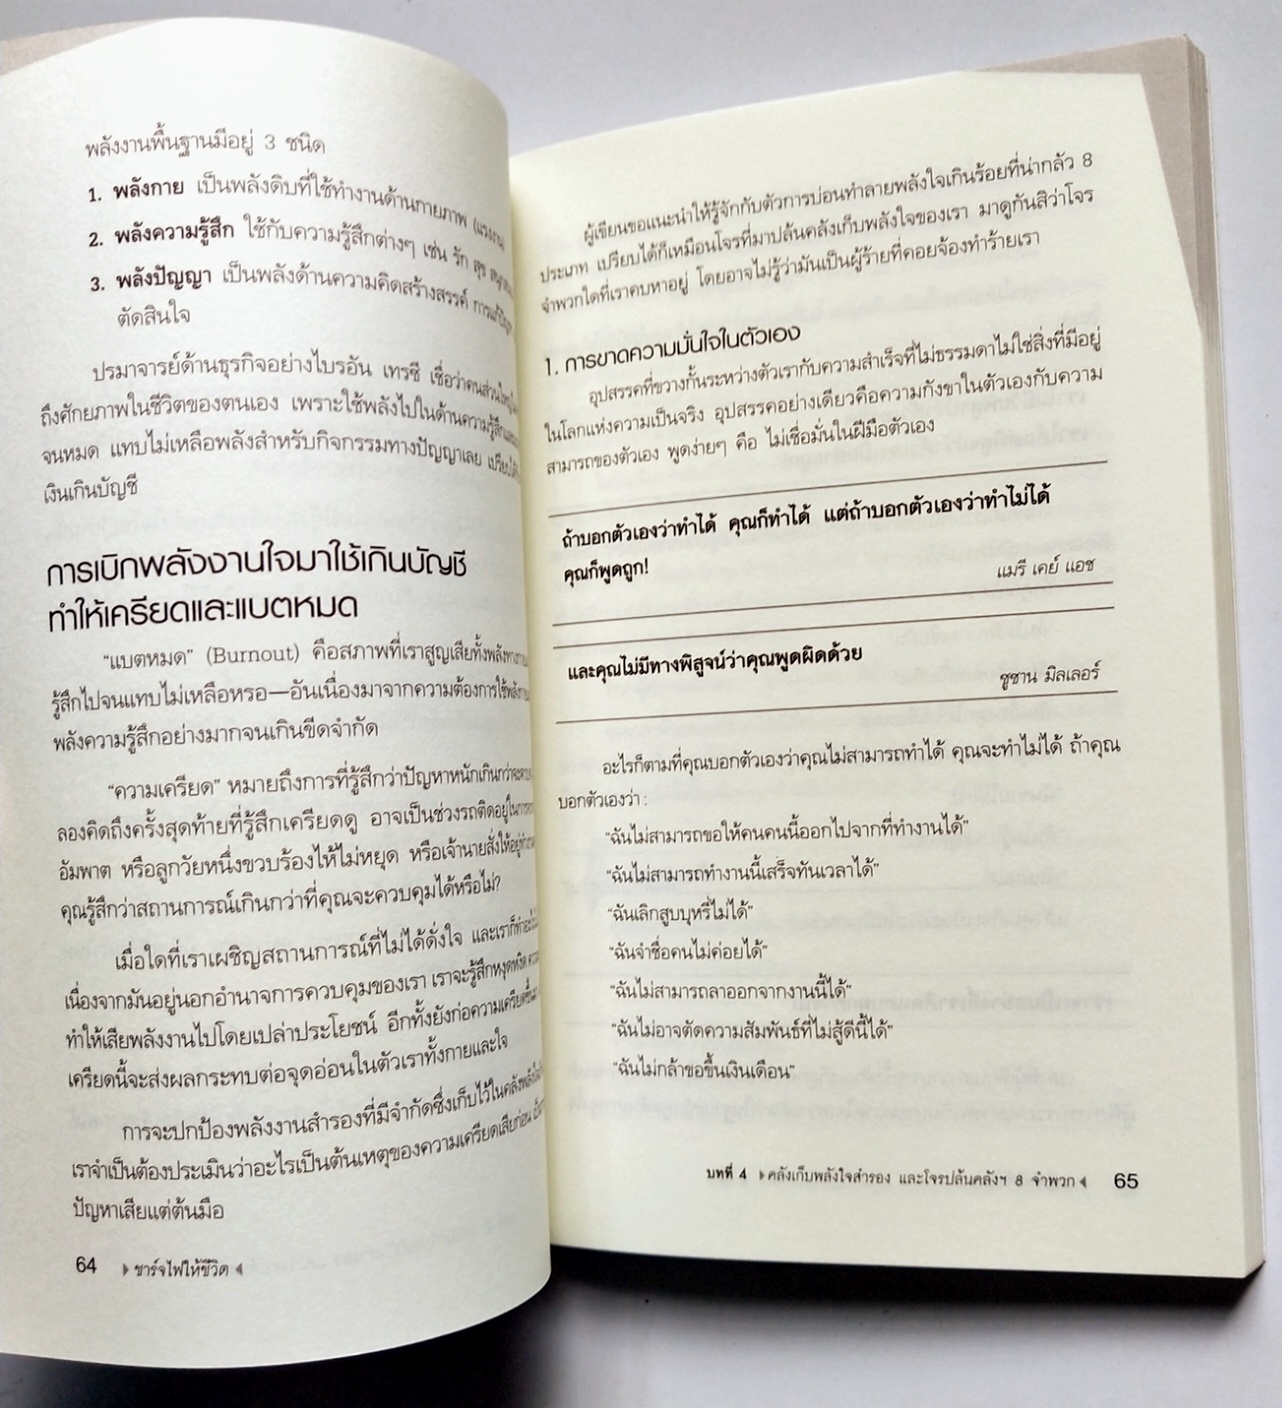 พลังงานพื้นฐานมีอยู่ 3 ชนิด
1. พลังกาย เป็นพลังดิบที่ใช้ทำงานด้านกายภาพ (แรงงาน)
2. พลังความรู้สึก ใช้กับความรู้สึกต่างๆ เช่น รัก สุข
3. พลังปัญญา เป็นพลังด้านความคิดสร้างสรรค์ การแก้ปัญหา
ตัดสินใจ
ปรมาจารย์ด้านธุรกิจอย่างไบรอัน เทรซี เชื่อว่าคนส่วนใหญ่
ถึงศักยภาพในชีวิตของตนเอง เพราะใช้พลังไปในด้านความรู้สึก
จนหมด แทบไม่เหลือพลังสำหรับกิจกรรมทางปัญญาเลย
เงินเกินบัญชี
การเบิกพลังงานใจมาใช้เกินบัญชี
ทำให้เครียดและแบตหมด
“แบตหมด” (Burnout) คือสภาพที่เราสูญเสียทั้งพลังทาง
รู้สึกไปจนแทบไม่เหลือหรอ—อันเนื่องมาจากความต้องการใช้พลัง
พลังความรู้สึกอย่างมากจนเกินขีดจำกัด
“ความเครียด” หมายถึงการที่รู้สึกว่าปัญหาหนักเกินกว่าจะ
ลองคิดถึงครั้งสุดท้ายที่รู้สึกเครียดดู อาจเป็นช่วงรถติดอยู่ใน
อัมพาต หรือลูกวัยหนึ่งขวบร้องไห้ไม่หยุด หรือเจ้านายสั่งให้อยู่
คุณรู้สึกว่าสถานการณ์เกินกว่าที่คุณจะควบคุมได้หรือไม่?
เมื่อใดที่เราเผชิญสถานการณ์ที่ไม่ได้ดั่งใจ และเราก็
เนื่องจากมันอยู่นอกอำนาจการควบคุมของเรา เราจะรู้สึกหงุดหงิด
ทำให้เสียพลังงานไปโดยเปล่าประโยชน์ อีกทั้งยังก่อความเครียด
เครียดนี้จะส่งผลกระทบต่อจุดอ่อนในตัวเราทั้งกายและใจ
การจะปกป้องพลังงานสำรองที่มีจำกัดซึ่งเก็บไว้ในคลังพลัง
เราจำเป็นต้องประเมินว่าอะไรเป็นต้นเหตุของความเครียดเสียก่อน
ปัญหาเสียแต่ต้นมือ
64 ชาร์จไฟให้ชีวิต
ผู้เขียนขอแนะนำให้รู้จักกับตัวการบ่อนทำลายพลังใจเกินร้อยที่น่ากลัว 8
ประเภท เปรียบได้ก็เหมือนโจรที่มาปล้นคลังเก็บพลังใจของเรา มาดูกันสิว่าโจร
จำพวกใดที่เราคบหาอยู่ โดยอาจไม่รู้ว่ามันเป็นผู้ร้ายที่คอยจ้องทำร้ายเรา
1. การขาดความมั่นใจในตัวเอง
อุปสรรคที่ขวางกั้นระหว่างตัวเรากับความสำเร็จที่ไม่ธรรมดาไม่ใช่สิ่งที่มีอยู่
ในโลกแห่งความเป็นจริง อุปสรรคอย่างเดียวคือความกังขาในตัวเองกับความ
สามารถของตัวเอง พูดง่ายๆ คือ ไม่เชื่อมั่นในฝีมือตัวเอง
ถ้าบอกตัวเองว่าทำได้ คุณก็ทำได้ แต่ถ้าบอกตัวเองว่าทำไม่ได้
คุณก็พูดถูก!
แมรี เคย์ แอช
และคุณไม่มีทางพิสูจน์ว่าคุณพูดผิดด้วย
ซูซาน มิลเลอร์
อะไรก็ตามที่คุณบอกตัวเองว่าคุณไม่สามารถทำได้ คุณจะทำไม่ได้ ถ้าคุณ
บอกตัวเองว่า :
“ฉันไม่สามารถขอให้คนคนนี้ออกไปจากที่ทำงานได้”
“ฉันไม่สามารถทำงานนี้เสร็จทันเวลาได้”
“ฉันเลิกสูบบุหรี่ไม่ได้”
“ฉันจำชื่อคนไม่ค่อยได้”
“ฉันไม่สามารถลาออกจากงานนี้ได้”
“ฉันไม่อาจตัดความสัมพันธ์ที่ไม่สู้ดีนี้ได้”
“ฉันไม่กล้าขอขึ้นเงินเดือน”
บทที่ 4 คลังเก็บพลังใจสำรอง และโจรปล้นคลังฯ 8 จำพวก 65